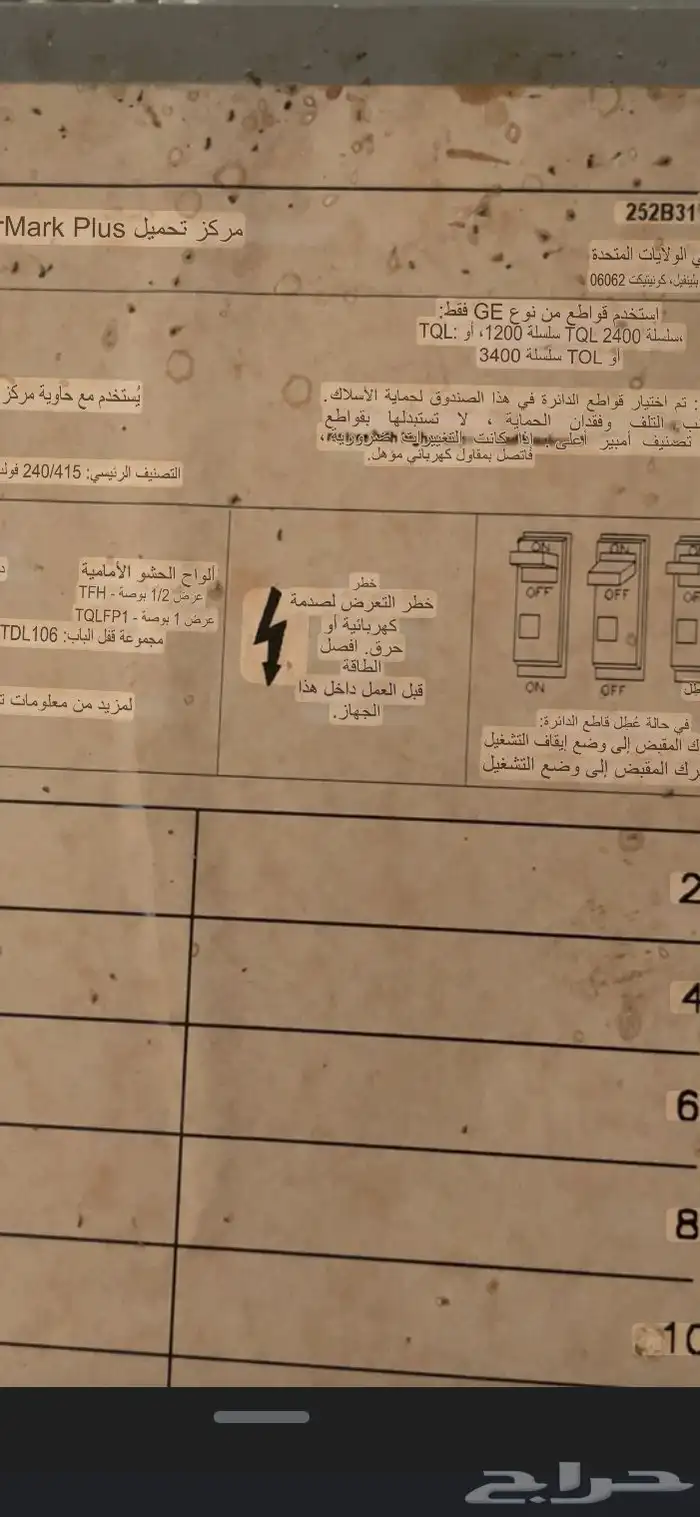 252B31
rMark Plus مركز تحميل
ي الولايات المتحدة
بلينفيل، كونيتيكت 06062
استخدم قواطع من نوع GE فقط:
سلسلة TQL 2400، سلسلة 1200، أو TQL:
أو TOL سلسلة 3400
يُستخدم مع حاوية مركز
: تم اختيار قواطع الدائرة في هذا الصندوق لحماية الأسلاك.
التلف وفقدان الحماية ، لا تستبدلها بقواطع
تصنيف أمبير أعلى. إذا كانت التغييرات ضرورية،
فاتصل بمقاول كهربائي مؤهل.
التصنيف الرئيسي: 240/415 فولت
ألواح الحشو الأمامية
عرض 1/2 بوصة - TFH
عرض 1 بوصة - TQLFP1
مجموعة قفل الباب: TDL106
لمزيد من معلومات
خطر
خطر التعرض لصدمة
كهربائية أو
حرق. افصل
الطاقة
قبل العمل داخل هذا
الجهاز.
ON
ON
OFF
OFF
ON
OFF
في حالة عُطِل قاطع الدائرة:
المقبض إلى وضع إيقاف التشغيل
المقبض إلى وضع التشغيل
2
4
6
8
10
حراج